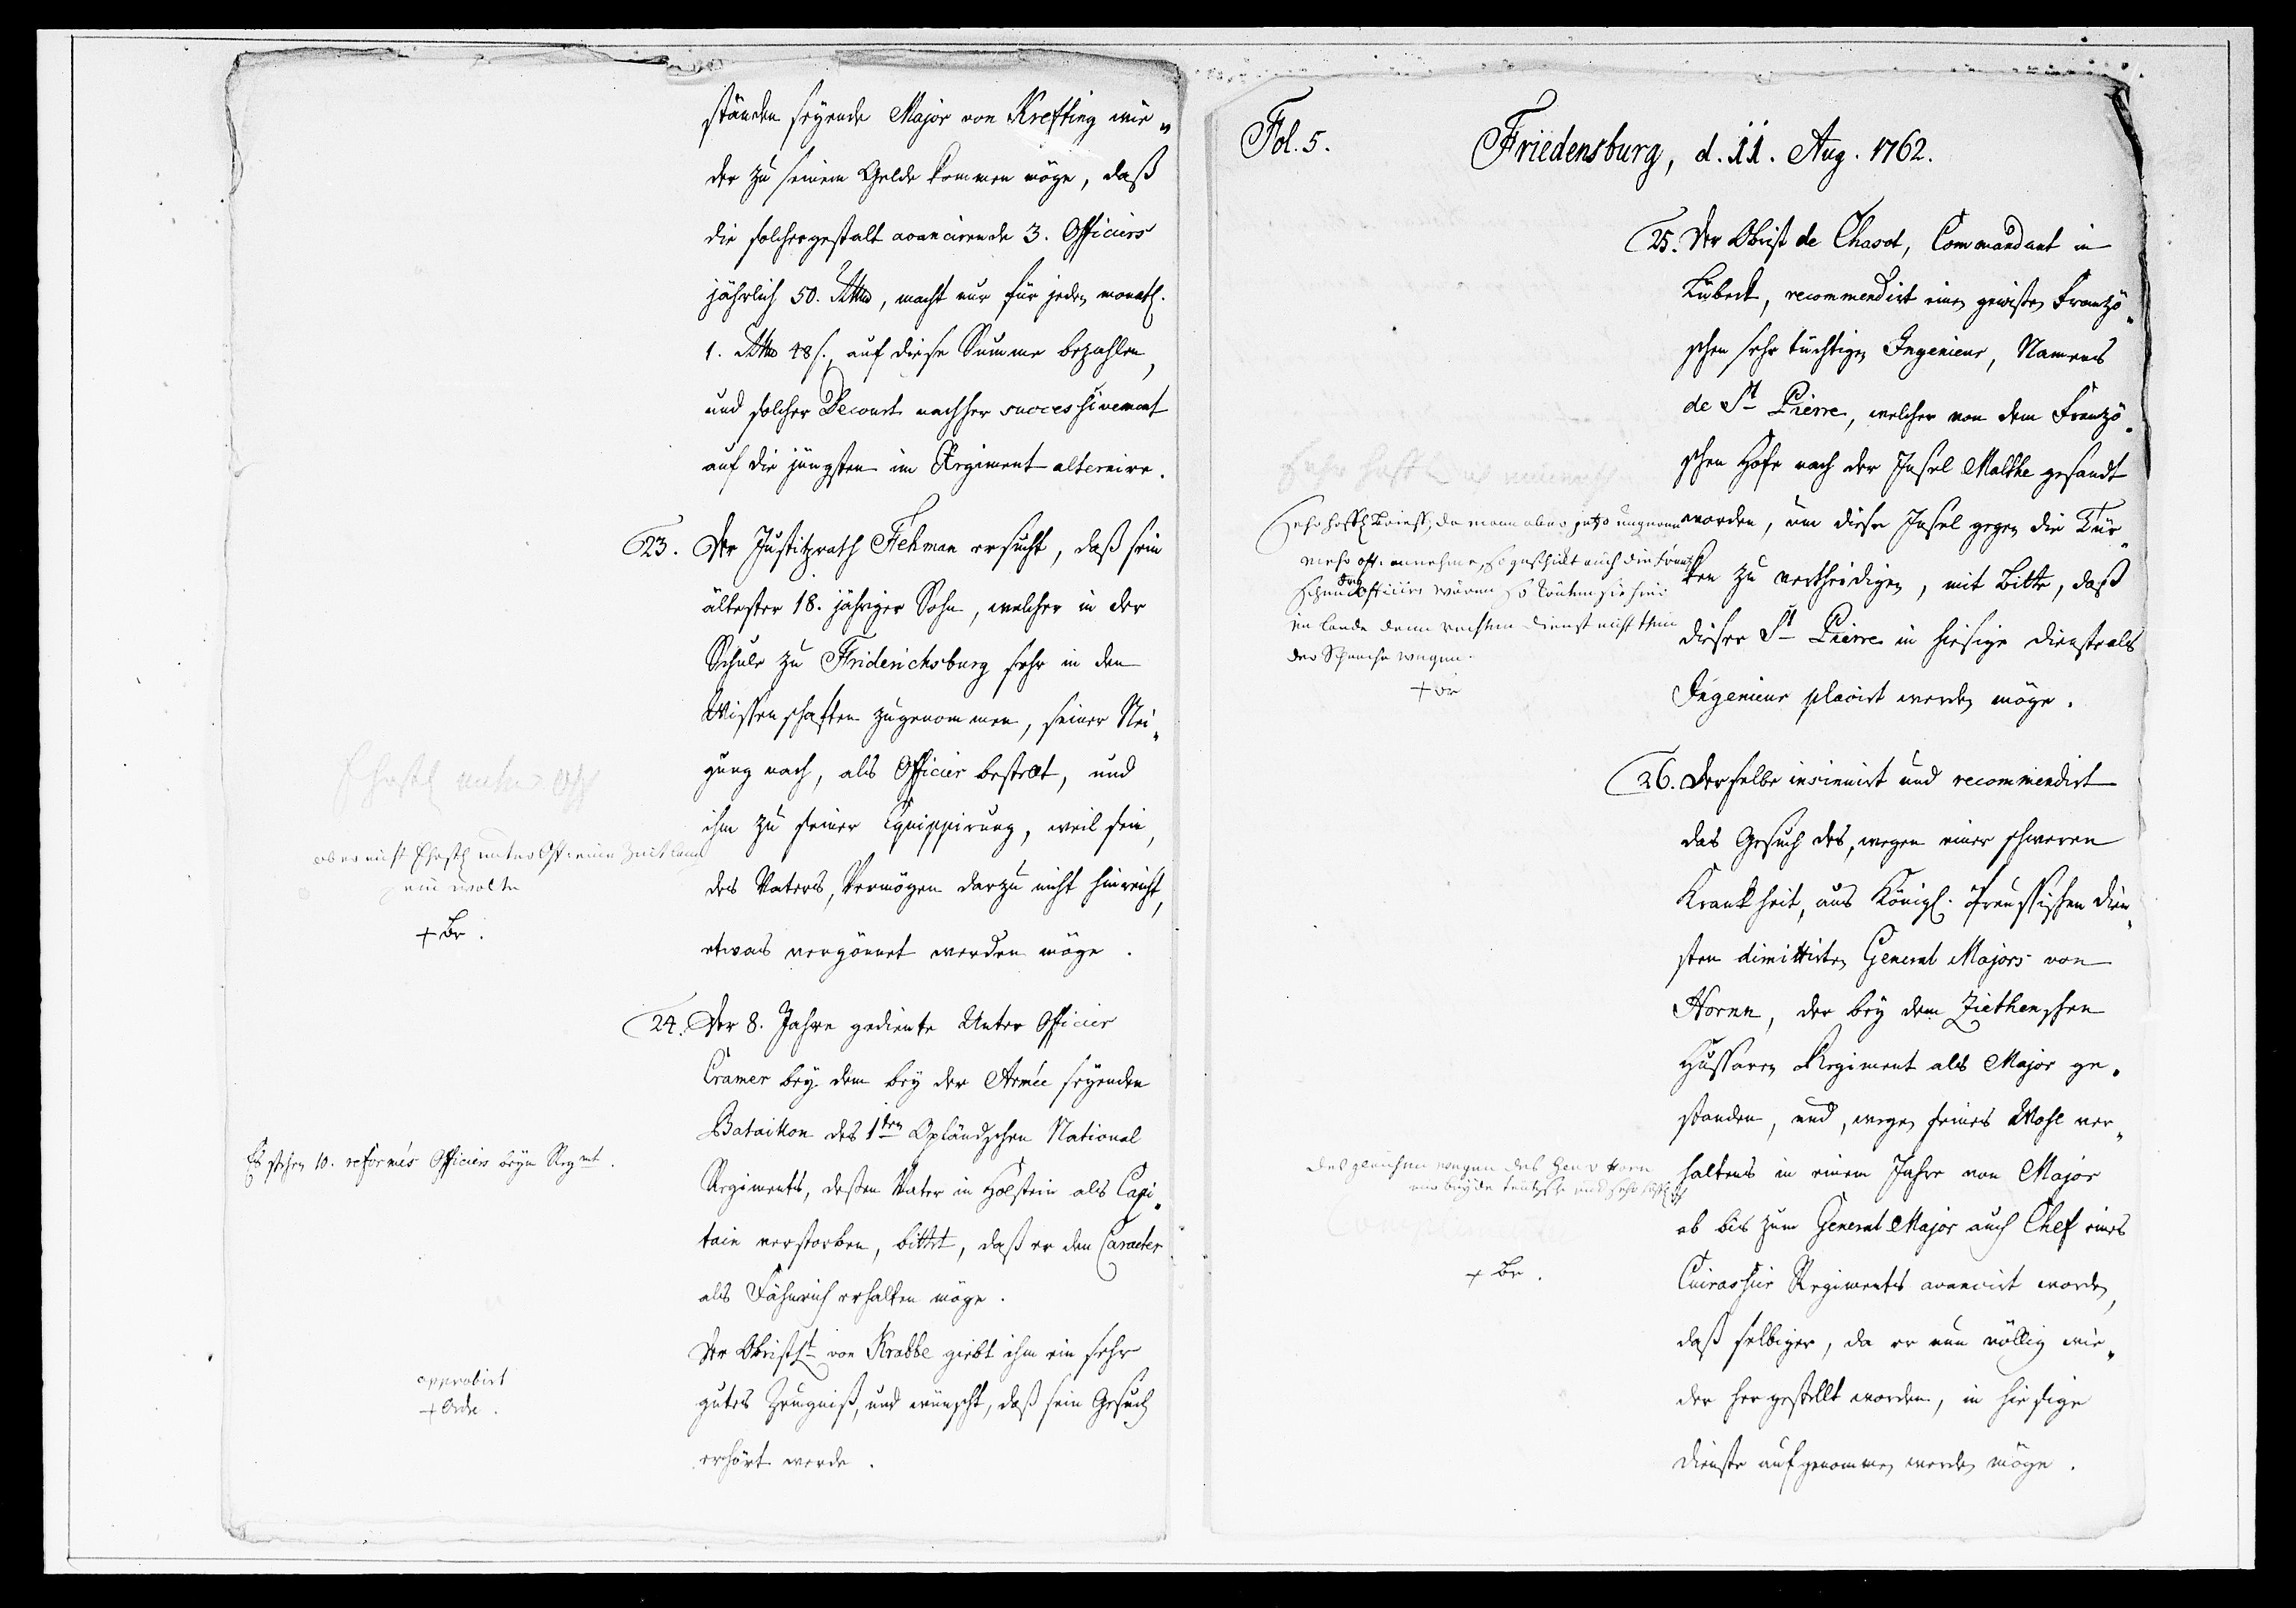 ständen seyende Major von Krefting wie„
der zu seinem Gelde kommen möge, daß
die solchergestalt avancirende 3. Officiers
jährlich 50. Rthlr, macht nur für jeden monatl.
1. Rthlr 48 ß., auf diese Summe bezahlen,
und solcher Decourt nachher successivement
auf die jüngsten im Regiment alternire.
23. Der Justitzrath Fehman ersucht, daß sein
ältester 18. jähriger Sohn, welcher in der
Schule zu Friderichsburg sehr in den
Wissenschaften zugenommen, seiner Nei„
gung nach, als Officier bestellet, und
ihm zu seiner Equippirung, weil sein,
des Vaters, Vermögen darzu nicht hinreicht,
etwas vergönnet werden möge.
ob er nicht Ehrstl unter Off: eine Zeit lang
sein wolte
+ Br.
24. Der 8. Jahre gediente Unter Officier
Cramer bey dem bey der Armée seyenden
Bataillon des 1ten Opländschen National
Regiments, deßen Vater in Holstein als Capi„
tain verstorben, bittet, daß er den Caracter
als Fähnrich erhalten möge.
Der Obristlt von Krabbe giebt ihm ein sehr
gutes Zeugniß, und wünscht, daß sein Gesuch
erhört werde.
Es stehen 10. reformés Officiers beym Regmt.
approbirt
+ Ordre.
Fol. 5.
Friedensburg, d. 11. Aug. 1762.
25. Der Obrist de Chasot, Commandant in
Lübeck, recommendirt einen gewißen Franzö„
schen sehr tüchtigen Ingenieur, Namens
de St Pierre, welcher von dem Franzö„
schen Hofe nach der Insel Malthe gesandt
worden, um diese Insel gegen die Tür„
ken zu vertheidigen, mit Bitte, daß
dieser St Pierre in hiesige Dienste als
Ingenieur placirt werden möge.
sehr höfl Brieff, da man aber jetzo ungerne
mehr off: annehme, so geschickt auch die frantz
schen Officiers wären so könten sie hier
im lande denn rechten Dienst nicht thun
der Sprache wegen.
+ Br
26. Derselbe insinuirt und recommendirt
das Gesuch des, wegen einer schweren
Krankheit, aus Königl. Preussischen Dien„
sten dimittirten General Majors von
Hornn, der bey dem Ziethenschen
Hussaren Regiment als Major ge„
standen, und, wegen seines Wohl ver„
haltens in einem Jahre von Major
ab bis zum General Major auch Chef eines
Cuirassier Regiments avancirt worden,
daß selbiger, da er nun völlig wie„
der hergestellt worden, in hiesige
Dienste aufgenommen werden möge.
Desgleichen wegen des Gen v Horn
+ Br.